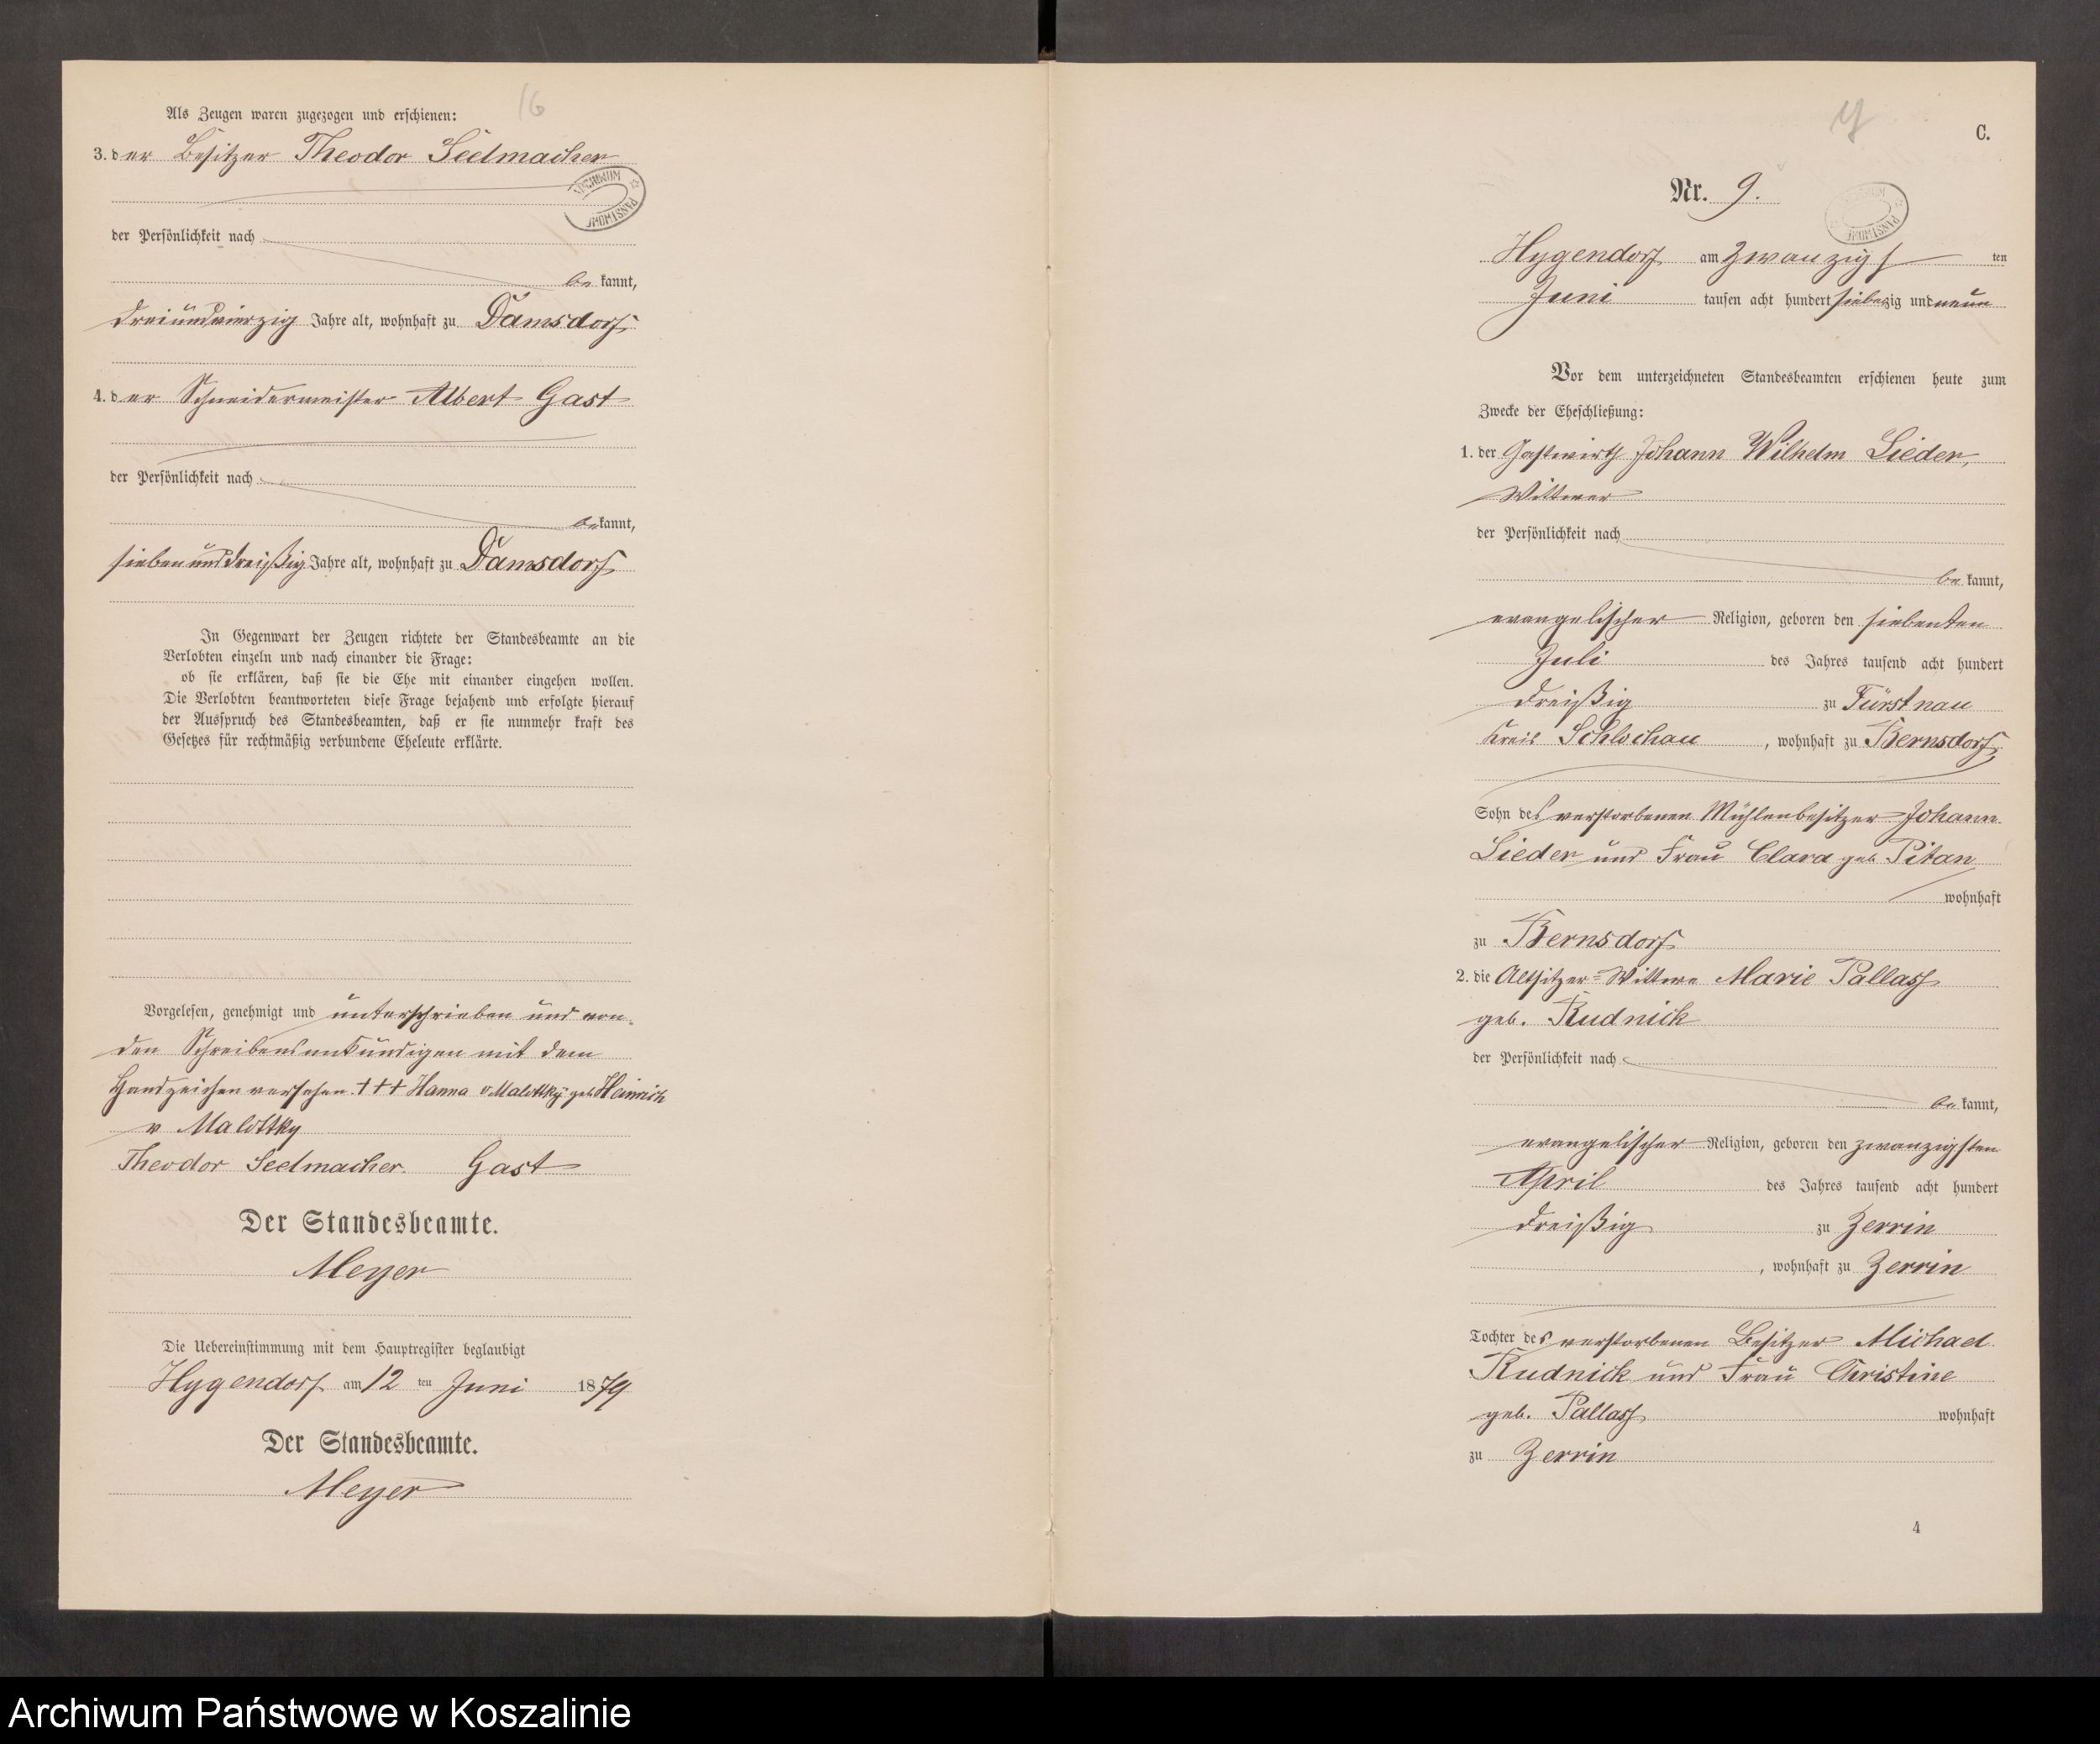 16
Als Zeugen waren zugezogen und erschienen:
3. der Besitzer Theodor Seelmacher
ARCHIWUM PAŃSTWOWE
der Persönlichkeit nach
be kannt,
dreiundvierzig Jahre alt, wohnhaft zu Damsdorf
4. der Schneidermeister Albert Gast
der Persönlichkeit nach
bekannt,
siebenunddreißig Jahre alt, wohnhaft zu Damsdorf
In Gegenwart der Zeugen richtete der Standesbeamte an die
Verlobten einzeln und nach einander die Frage:
ob sie erklären, daß sie die Ehe mit einander eingehen wollen.
Die Verlobten beantworteten diese Frage bejahend und erfolgte hierauf
der Ausspruch des Standesbeamten, daß er sie nunmehr kraft des
Gesetzes für rechtmäßig verbundene Eheleute erklärte.
Vorgelesen, genehmigt und unterschrieben und von
den Schreibensunkundigen mit dem
Handzeichen versehen. +++ Hanna v Malottky geb Heinrich
v Malottky
Theodor Seelmacher. Gast
Der Standesbeamte.
Meyer
Die Uebereinstimmung mit dem Hauptregister beglaubigt
Hygendorf am 12 ten Juni 1879
Der Standesbeamte.
Meyer
C.
Nr. 9.
Hygendorf am zwanzigs ten
Juni tausen acht hundert siebenzig und neun
Vor dem unterzeichneten Standesbeamten erschienen heute zum
Zwecke der Eheschließung:
1. der Gastwirth Johann Wilhelm Lieder,
Wittwer
der Persönlichkeit nach
be kannt,
evangelischer Religion, geboren den siebenten
Juli des Jahres tausend acht hundert
dreißig zu Fürstnau
Kreis Schlochau, wohnhaft zu Bernsdorf
Sohn des verstorbenen Mühlenbesitzer Johann
Lieder und Frau Clara geb Pitan
wohnhaft
zu Bernsdorf
2. die Altsitzer-Wittwe Marie Pallass
geb. Rudnick
der Persönlichkeit nach
be kannt,
evangelischer Religion, geboren den zwanzigsten
April des Jahres tausend acht hundert
dreißig zu Zerrin
, wohnhaft zu Zerrin
Tochter des verstorbenen Besitzer Michael
Rudnick und Frau Christine
geb. Pallass wohnhaft
zu Zerrin
4
Archiwum Państwowe w Koszalinie